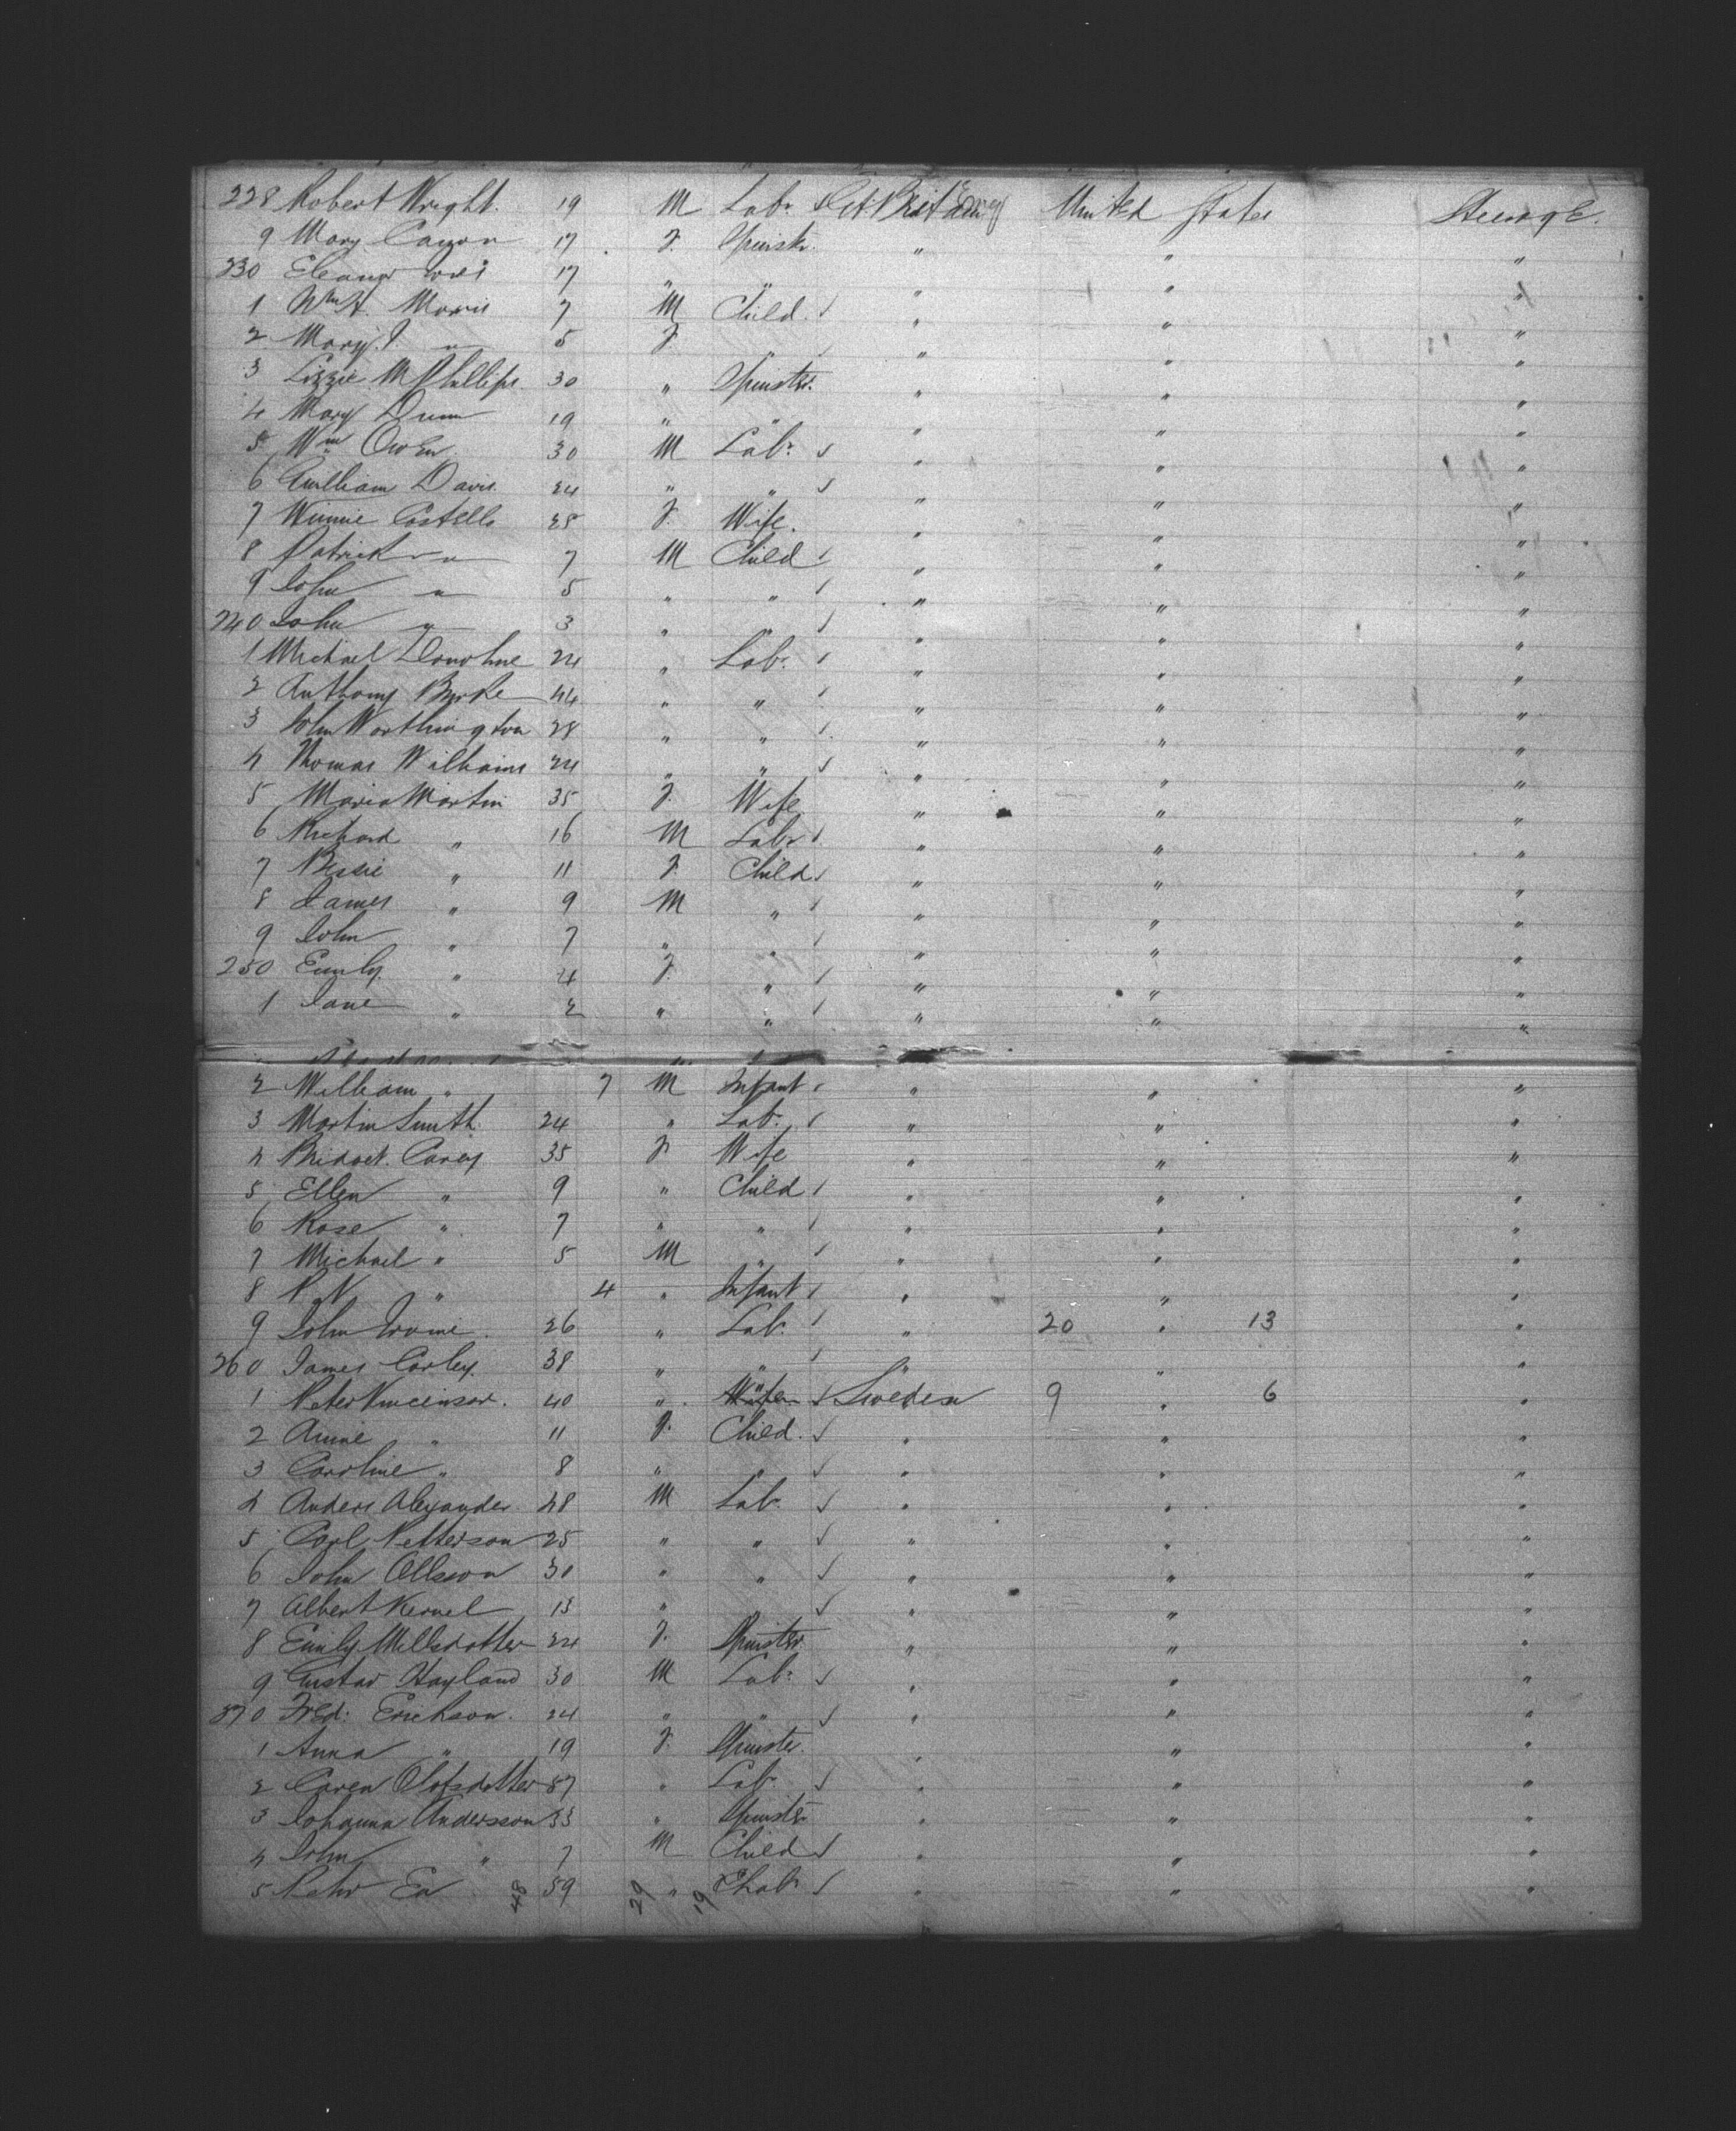 228 Robert Wright. 19 M Labr ✓ Gt Britain United States Steerage.
9 Mary 17 F. Spinstr. " " "
230 Eleanor 17 " " " " "
1 Wm H. Morris 7 M Child. ✓ " " "
2 Mary J " 5 F. " " " "
3 Lizzie M Phillips 30 " Spinster. " " "
4 Mary Dunn 19 " " " " "
5 Wm Owen 30 M Labr ✓ " " "
6 William Davis. 24 " " ✓ " " "
7 Winnie Costello 28 F. Wife. " " "
8 Patrick " 7 M Child ✓ " " "
9 John " 5 " " ✓ " " "
240 John " 3 " " ✓ " " "
1 Michael Donohue 24 " Labr ✓ " " "
2 Anthony Burke 44 " " ✓ " " "
3 John Worthington 28 " " ✓ " " "
4 Thomas Williams 24 " " ✓ " " "
5 Maria Martin 35 F. Wife " " "
6 Richard " 16 M Labr ✓ " " "
7 Bessie " 11 F. Child ✓ " " "
8 James " 9 M " ✓ " " "
9 John " 7 " " ✓ " " "
250 Emily " 4 F. " ✓ " " "
1 Jane " 2 " " ✓ " " "
2 William " 7 M Infant ✓ " " "
3 Martin Smith 24 " Labr ✓ " " "
4 Bridget. Carey 35 F Wife " " "
5 Ellen " 9 " Child ✓ " " "
6 Rose " 7 " " ✓ " " "
7 Michael " 5 M " ✓ " " "
8 " 4 " Infant ✓ " " "
9 John 26 " Labr ✓ " 20 " 13 "
260 James Corley. 38 " " ✓ " " "
1 Peter Vincenson. 40 " " ✓ Sweden 9 " 6 "
2 Annie " 11 F. Child. ✓ " " "
3 Caroline " 8 " " ✓ " " "
4 Anders Alexander 48 M Labr ✓ " " "
5 Carl Petterson 25 " " ✓ " " "
6 John Ollsson 30 " " ✓ " " "
7 Albert Kernel 13 " " ✓ " " "
8 Emily Millsdotter 24 F. Spinster. " " "
9 Gustav Hayland 30 M Labr ✓ " " "
270 Fred: Erickson. 24 " " ✓ " " "
1 Anna " 19 F. Spinster. " " "
2 Caren Olofsdotter 57 " Labr ✓ " " "
3 Johanna Andersson 33 " Spinster " " "
4 John " 7 M Child ✓ " " "
5 59 " Labr ✓ " " "
48 29 19